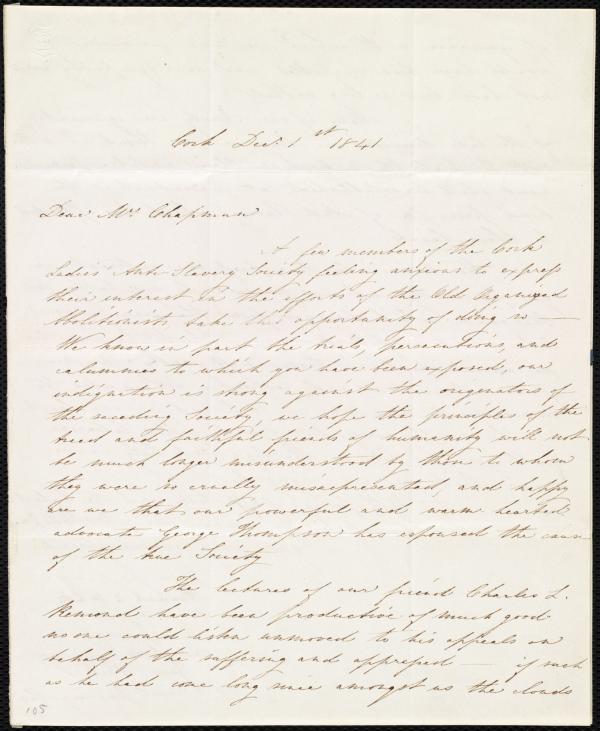 Cork Dec. 1st 1841
Dear Mrs Chapman
A few members of the Cork
Ladies Anti-Slavery Society feeling anxious to express
their interest in the efforts of the Old Organized
Abolitionists take this opportunity of doing so —
We know in part the trials, persecutions, and
calumnies to which you have been exposed, our
indignation is strong against the originators of
the seceding Society, we hope the principles of the
tried and faithful friends of humanity will not
be much longer misunderstood by those to whom
they were so cruelly misrepresented, and happy
are we that our powerful and warm hearted
advocate George Thompson has espoused the cause
of the true Society
The lectures of our friend Charles L.
Remond have been productive of much good
no one could listen unmoved to his appeals on
behalf of the suffering and oppressed — if such
as he had come long since amongst us the clouds
105